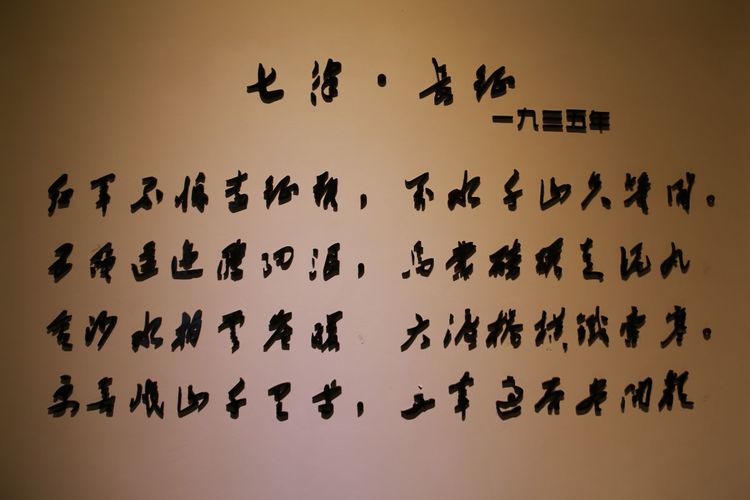 七律·長征
一九三五年
红军不怕远征难，万水千山只等闲。
五嶺逶迤腾细浪，乌蒙磅礴走泥丸
金沙水拍雲崖暖 大渡橋横鐵索寒。
更喜岷山千里雪，三军过后尽开颜